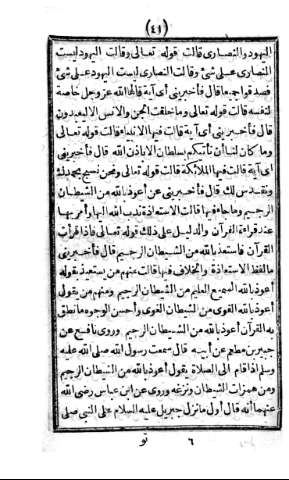 (٤١)
اليهود والنصارى قالت قوله تعالى وقالت اليهود ليست
النصارى على شئ وقالت النصارى ليست اليهود على شئ
فصدقوا جميعا قال فأخبرينى أى آية قالها الله عز وجل خاصة
لنفسه قالت قوله تعالى وما خلقت الجن والانس الا ليعبدون
قال فأخبرينى أى آية قالت فيها الانبياء قالت قوله تعالى
وما كان لنا أن نأتيكم بسلطان الا باذن الله قال فأخبرينى
أى آية قالت فيها الملائكة قالت قوله تعالى ونحن نسبح بحمدك
ونقدس لك قال فأخبرينى عن أعوذ بالله من الشيطان
الرجيم وما جاء فيها قالت الاستعاذة ندب الله اليها وأمر بها
عند قراءة القرآن والدليل على ذلك قوله تعالى فاذا قرأت
القرآن فاستعذ بالله من الشيطان الرجيم قال فأخبرينى
ما لفظ الاستعاذة والخلاف فيها قالت منهم من يستعيذ بقوله
أعوذ بالله السميع العليم من الشيطان الرجيم ومنهم من يقول
أعوذ بالله القوى من الشيطان الغوى وأحسن الوجوه ما نطق
به القرآن أعوذ بالله من الشيطان الرجيم وروى نافع عن
جبير بن مطعم عن أبيه قال سمعت رسول الله صلى الله عليه
وسلم اذا قام الى الصلاة يقول أعوذ بالله من الشيطان الرجيم
ومن همزات الشيطان ونزغه وروى عن ابن عباس رضى الله
عنهما أنه قال أول ما نزل جبريل عليه السلام على النبى صلى
٦ تو